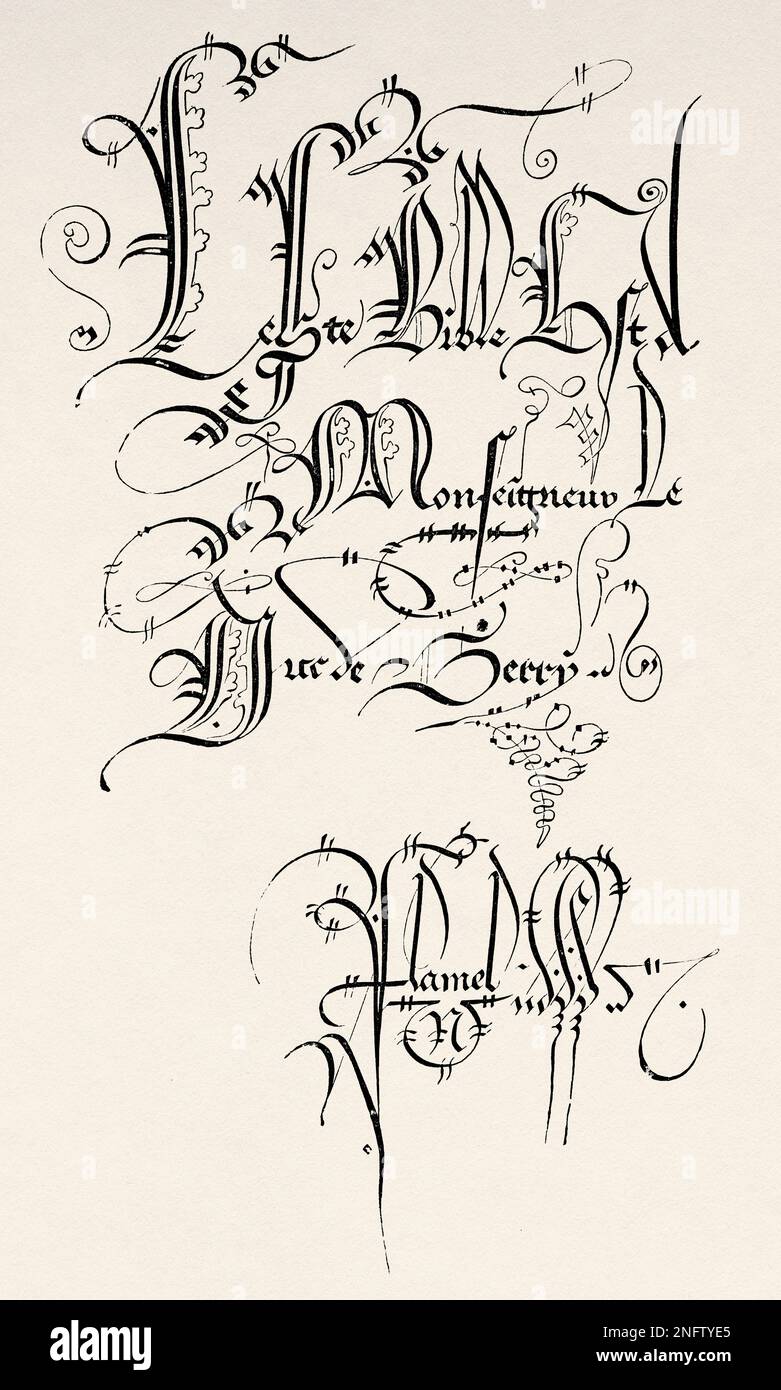 Ceste Bible Est a
Monseigneur Le
Duc de Berry
Flamel
N
alamy
alamy
alamy
alamy
alamy
Image ID: 2NFTYE5
www.alamy.com